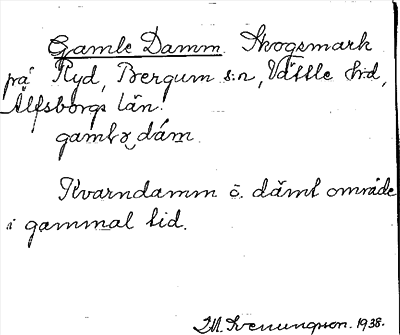 Gamle Damm. Skogsmark
på Ryd, Bergum s:n, Vättle hd,
Älfsborgs län.
gamlə dám
Kvarndamm o. dämt område
i gammal tid.
I.M. Svenungsson. 1938.